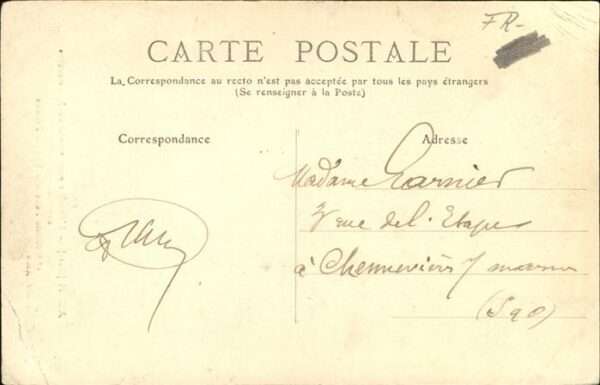 FR-
CARTE POSTALE
La Correspondance au recto n'est pas acceptée par tous les pays étrangers
(Se renseigner à la Poste)
Correspondance
Adresse
Madame Garnier
rue de l'Etape
à Chennevièrs s/ marne
(S&O)